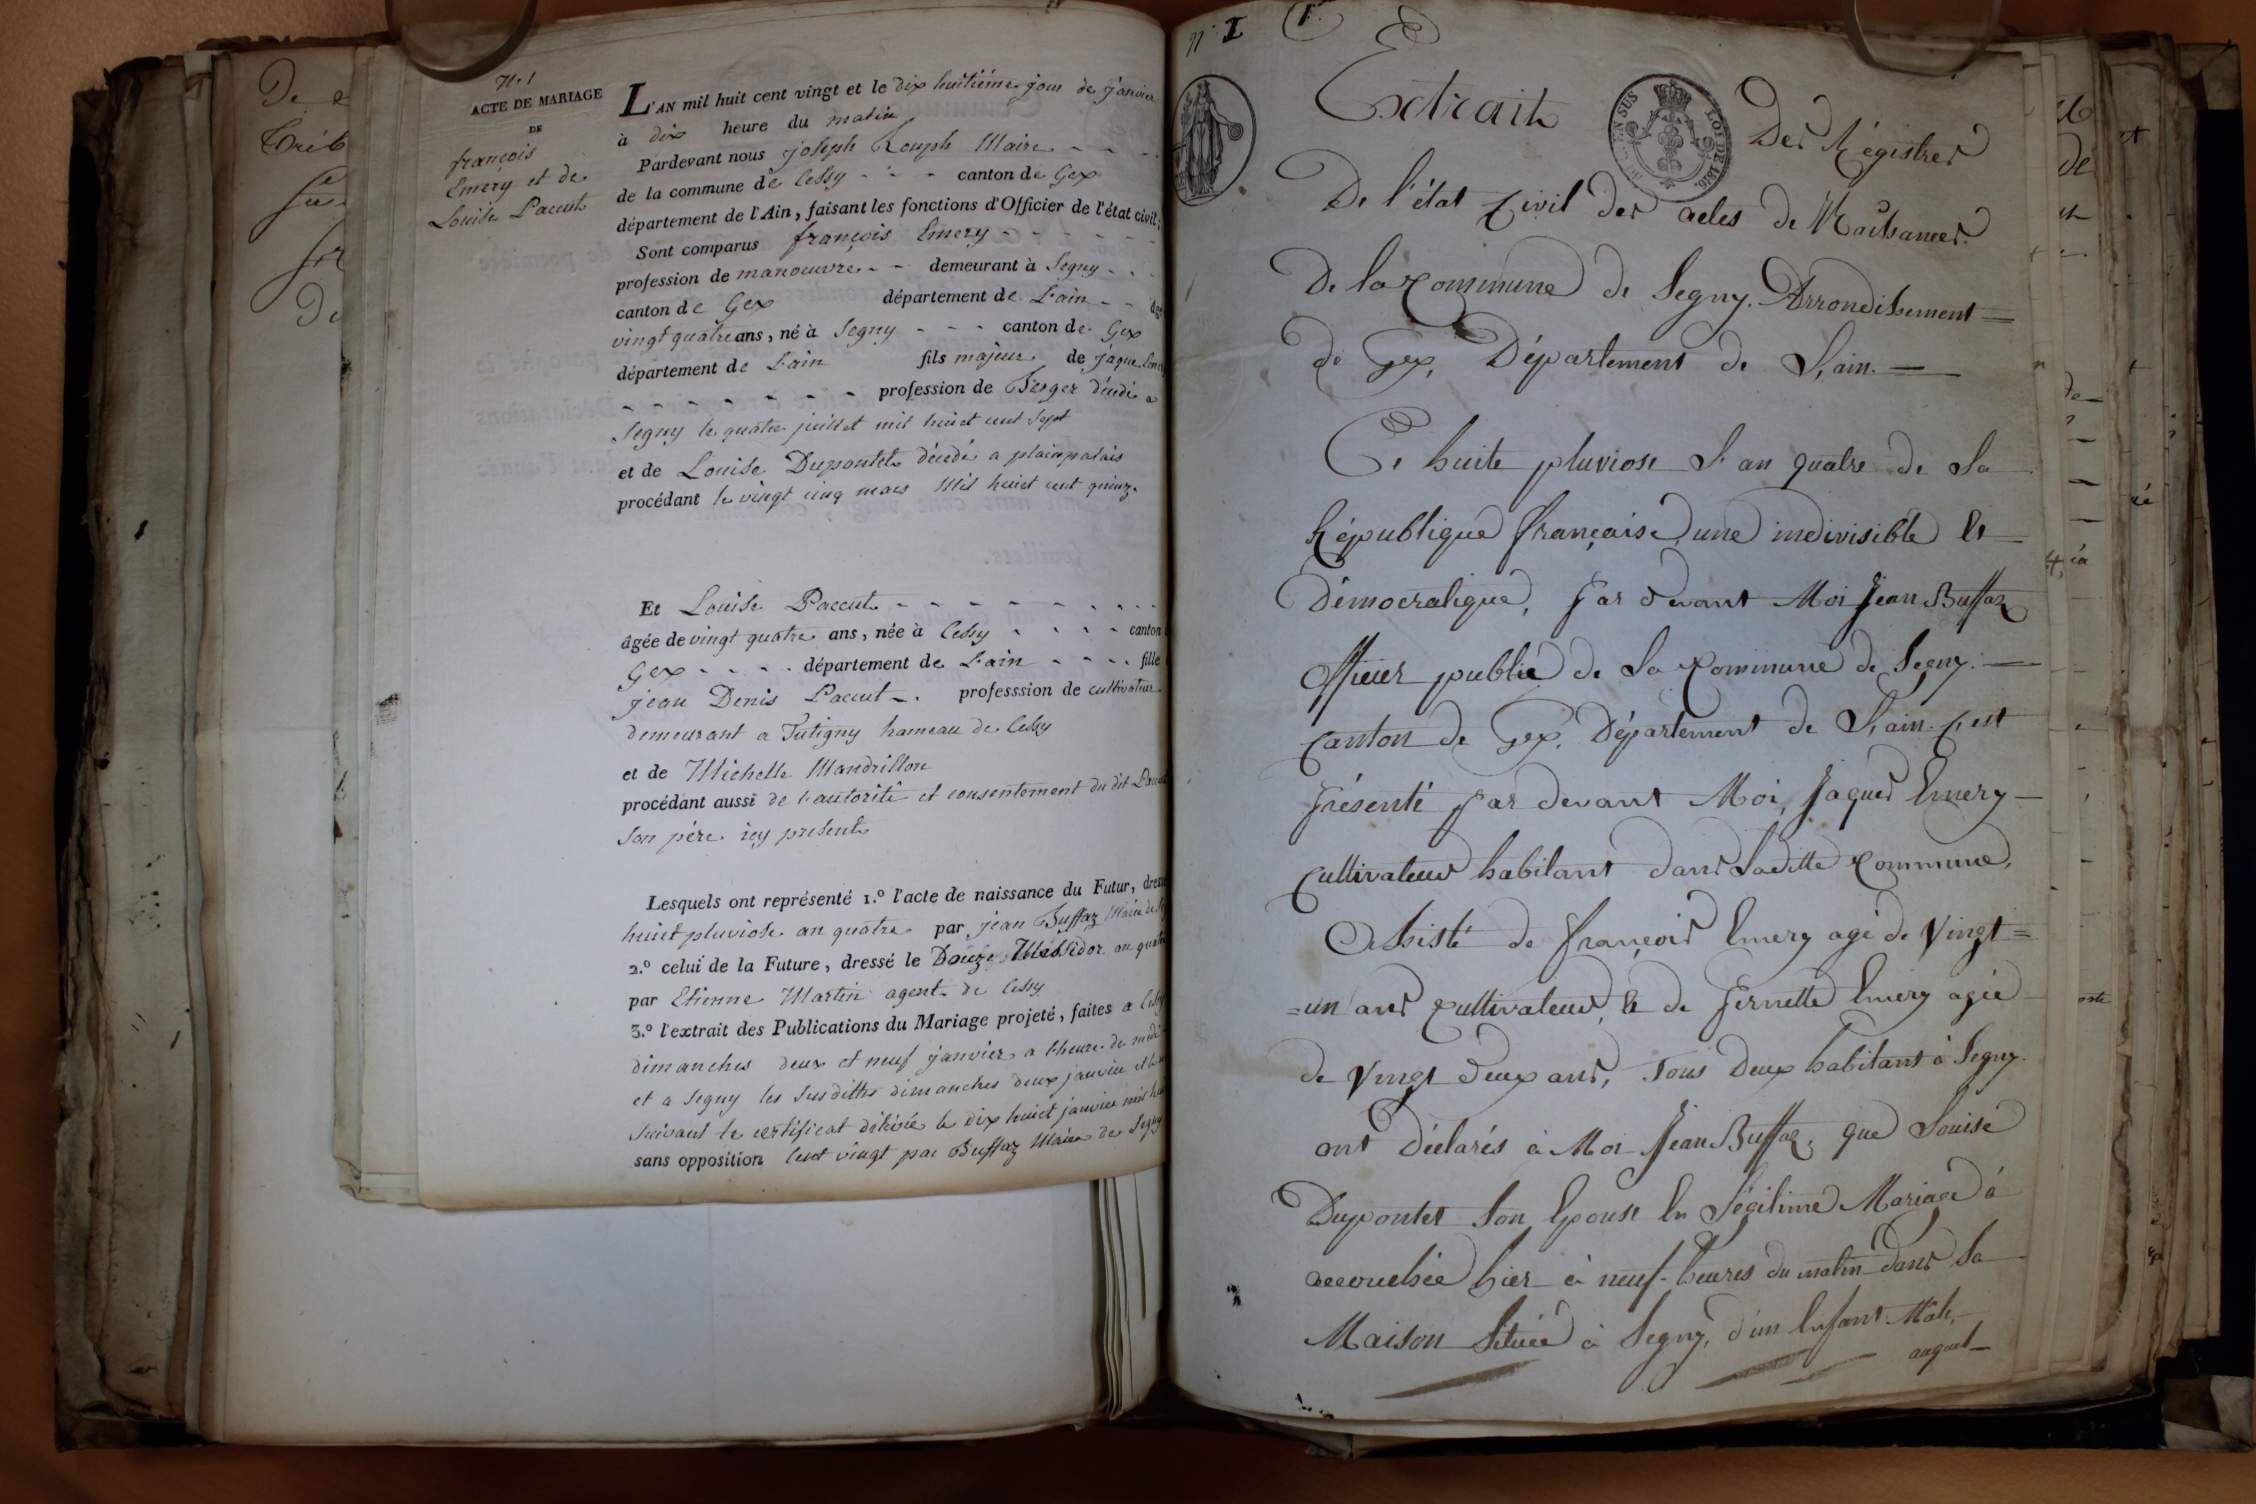 N.° 1
ACTE DE MARIAGE
DE
françois
Emery et de
Louise Paccut
L'AN mil huit cent vingt et le dix huitième jour de janvier
à dix heure du matin
Pardevant nous joseph Rouph Maire
de la commune de Cessy canton de Gex
département de l'Ain, faisant les fonctions d'Officier de l'état civil;
Sont comparus françois Emery
profession de manoeuvre demeurant à Segny
canton de Gex département de L'ain
vingt quatre ans, né à Segny canton de Gex
département de L'ain fils majeur de jaque
profession de Berger décédé a
Segny le quatre juillet mil huict cent sept
et de Louise Dupontet décédé a plainpalais
procédant le vingt cinq mars Mil huict cent quinz.
Et Louise Paccut
âgée de vingt quatre ans, née à Cessy canton
Gex département de L'ain fille
jean Denis Paccut professsion de cultivateur
demeurant a Tutigny hameau de Cessy
et de Michelle Mandrillon
procédant aussi de l'autorité et consentement du dit
son père icy present
Lesquels ont représenté 1.° l'acte de naissance du Futur,
huict pluviose an quatre par jean Buffaz Maire de
2.° celui de la Future, dressé le Douze Messidor an
par Etienne Martin agent de Cessy
3.° l'extrait des Publications du Mariage projeté, faites a
dimanches deux et neuf janvier a l'heure de
et a Segny les susdittes dimanches deux janvier et
suivant le certificat délivré le dix huict janvier mil
sans opposition Cent vingt par Buffaz Maire de Segny
N.° 1
Extrait Des Régistres
LOI DE 1816.
De l'état Civil des actes de Naissances.
De la Commune de Segny. Arrondissement
de Gex, Département de L'ain.
Ce huite pluviose L'an quatre de La
République française une indivisible et
Démocratique, par devant Moi Jean Buffaz
Officier public de La Commune de Segny.
Canton de Gex, Département de L'ain. C'est
présenté par devant Moi, Jaques Emery
Cultivateur habitant dans Laditte Commune,
Assisté de françois Emery agé de Vingt
un ans Cultivateur, et de pernette Emery agée
de Vingt deux ans, Tous Deux habitant à Segny.
ont Déclarés à Moi Jean Buffaz, que Louise
Dupontet Son Epouse En Légitime Mariage à
accouchée hier à neuf heures du matin dans La
Maison Située à Segny, d'un Enfant Mâle,
auquel